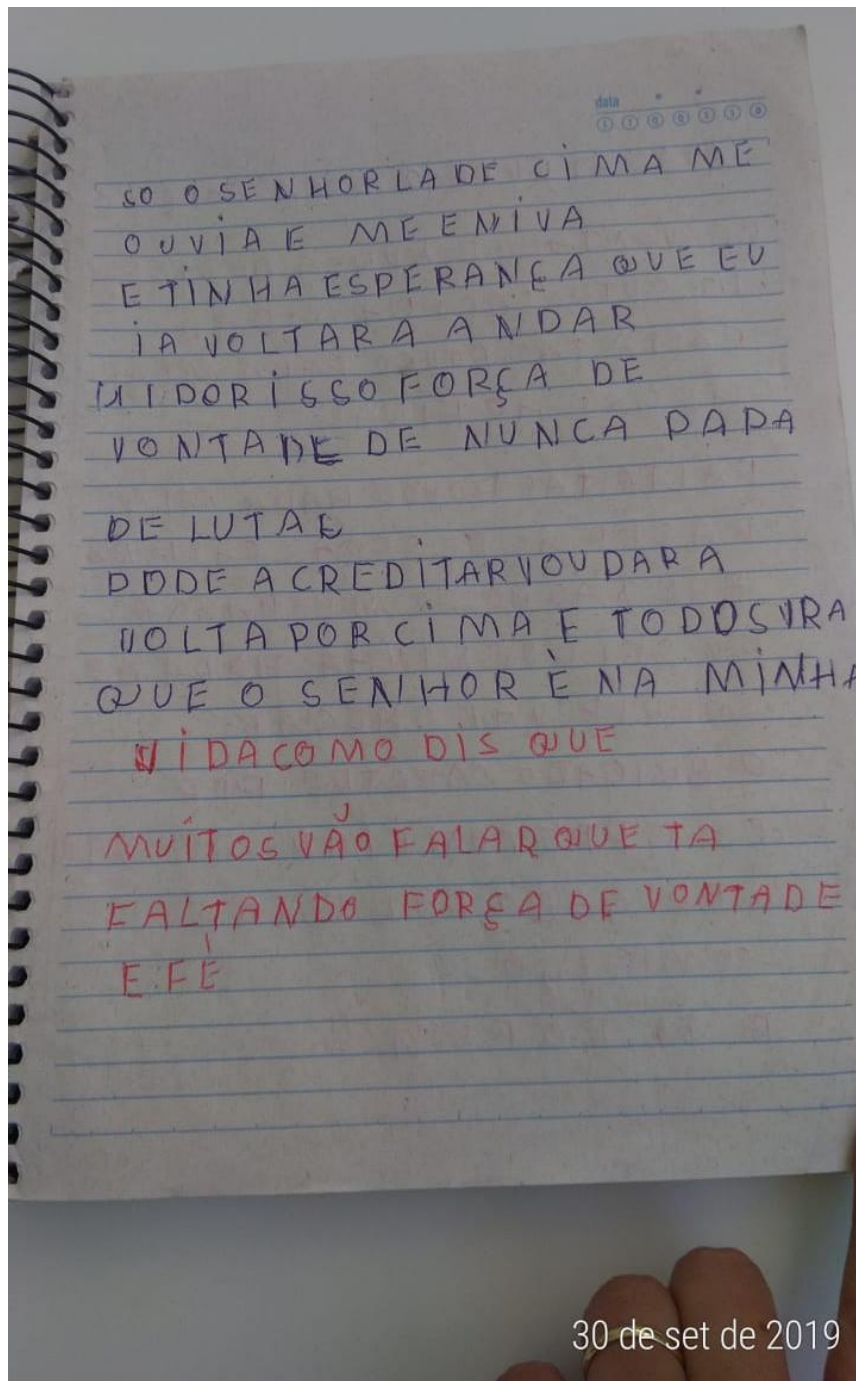 data
SO O SENHOR LA DE CIMA ME
OUVIA E ME ENIVA
E TINHA ESPERANÇA QUE EU
IA VOLTAR A ANDAR
DOR ISSO FORÇA DE
VONTADE DE NUNCA PAPA
DE LUTAE
PODE ACREDITAR VOU DAR A
VOLTA POR CIMA E TODOS VRA
QUE O SENHOR È NA MINHA
VIDA COMO DIS QUE
MUITOS VÃO FALAR QUE TA
FALTANDO FORÇA DE VONTADE
E FÉ
30 de set de 2019